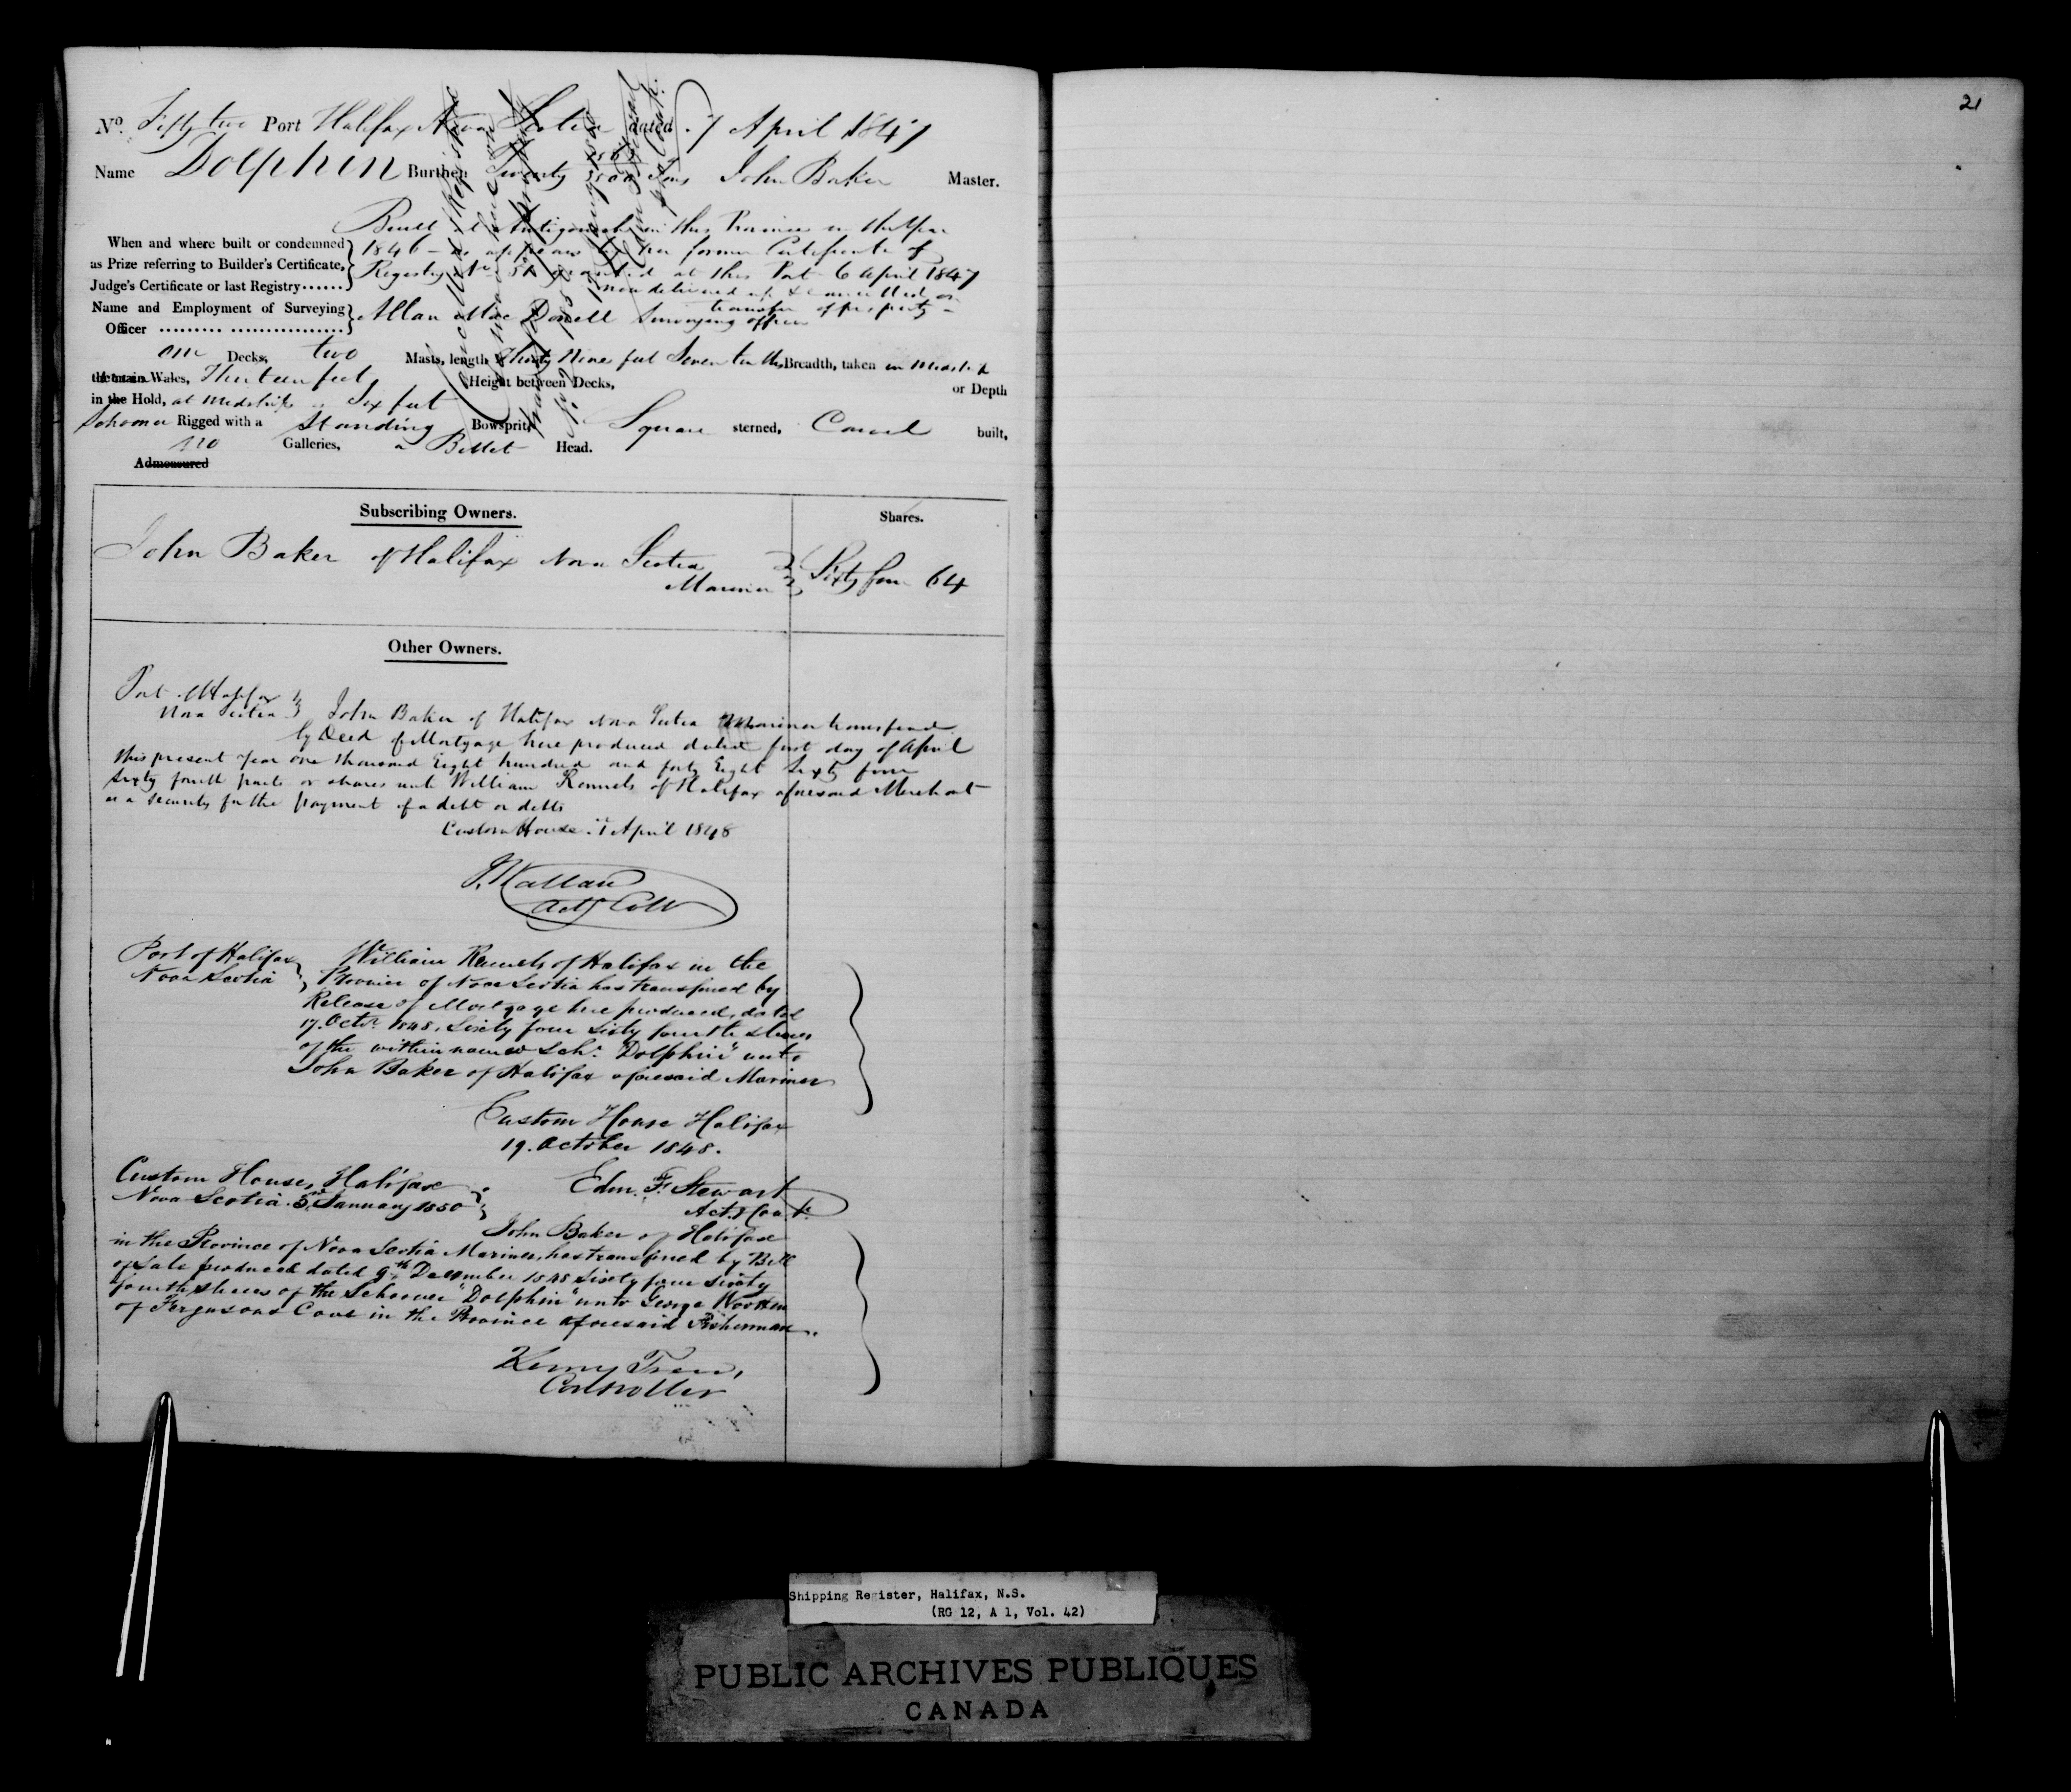 21
No. Fifty two Port Halifax Nova Scotia dated 7 April 1847
Name Dolphin Burthen Twenty Tons John Baker Master.
Built at Antigonish in this Province in the Year
When and where built or condemned 1846 - as appears by her former Certificate of
as Prize referring to Builder's Certificate, Registry No. 51 granted at this Port 6 April 1847
Judge's Certificate or last Registry...... now delivered up & cancelled on
transfer of property -
Name and Employment of Surveying Allan MacDonell Surveying officer
Officer
one Decks, two Masts, length Thirty Nine feet Seven tenths Breadth, taken in Midships
the main Wales, Thirteen feet, Height between Decks, or Depth
in the Hold, at Midships Six feet
Schooner Rigged with a Standing Bowsprit, Square sterned, Carvel built,
no Galleries, a Billet Head.
Admeasured
Subscribing Owners. Shares.
John Baker of Halifax Nova Scotia
Mariner Sixty four 64
Other Owners.
Port Halifax
Nova Scotia John Baker of Halifax Nova Scotia Mariner transferred
by Deed of Mortgage here produced dated first day of April
this present Year One thousand Eight hundred and forty Eight Sixty four
Sixty fourth parts or shares unto William of Halifax aforesaid Merchant
as a security for the payment of a debt or debts
Custom House 1 April 1848
Actg Collr
Port of Halifax William of Halifax in the
Nova Scotia Province of Nova Scotia has transferred by
Release of Mortgage here produced, dated
17. Octr. 1848, Sixty four sixty fourth shares
of the within named Schr. "Dolphin" unto
John Baker of Halifax aforesaid Mariner
Custom House Halifax
19. October 1848.
Edm. F. Stewart
Actg Cont.
Custom House, Halifax
Nova Scotia 5 January 1850
John Baker of Halifax
in the Province of Nova Scotia Mariner, has transferred by Bill
of Sale produced dated 9th December 1848 Sixty four sixty
fourth shares of the Schooner "Dolphin" unto George
of Fergusons Cove in the Province aforesaid Fisherman.
Controller
Shipping Register, Halifax, N.S.
(RG 12, A 1, Vol. 42)
PUBLIC ARCHIVES PUBLIQUES
CANADA